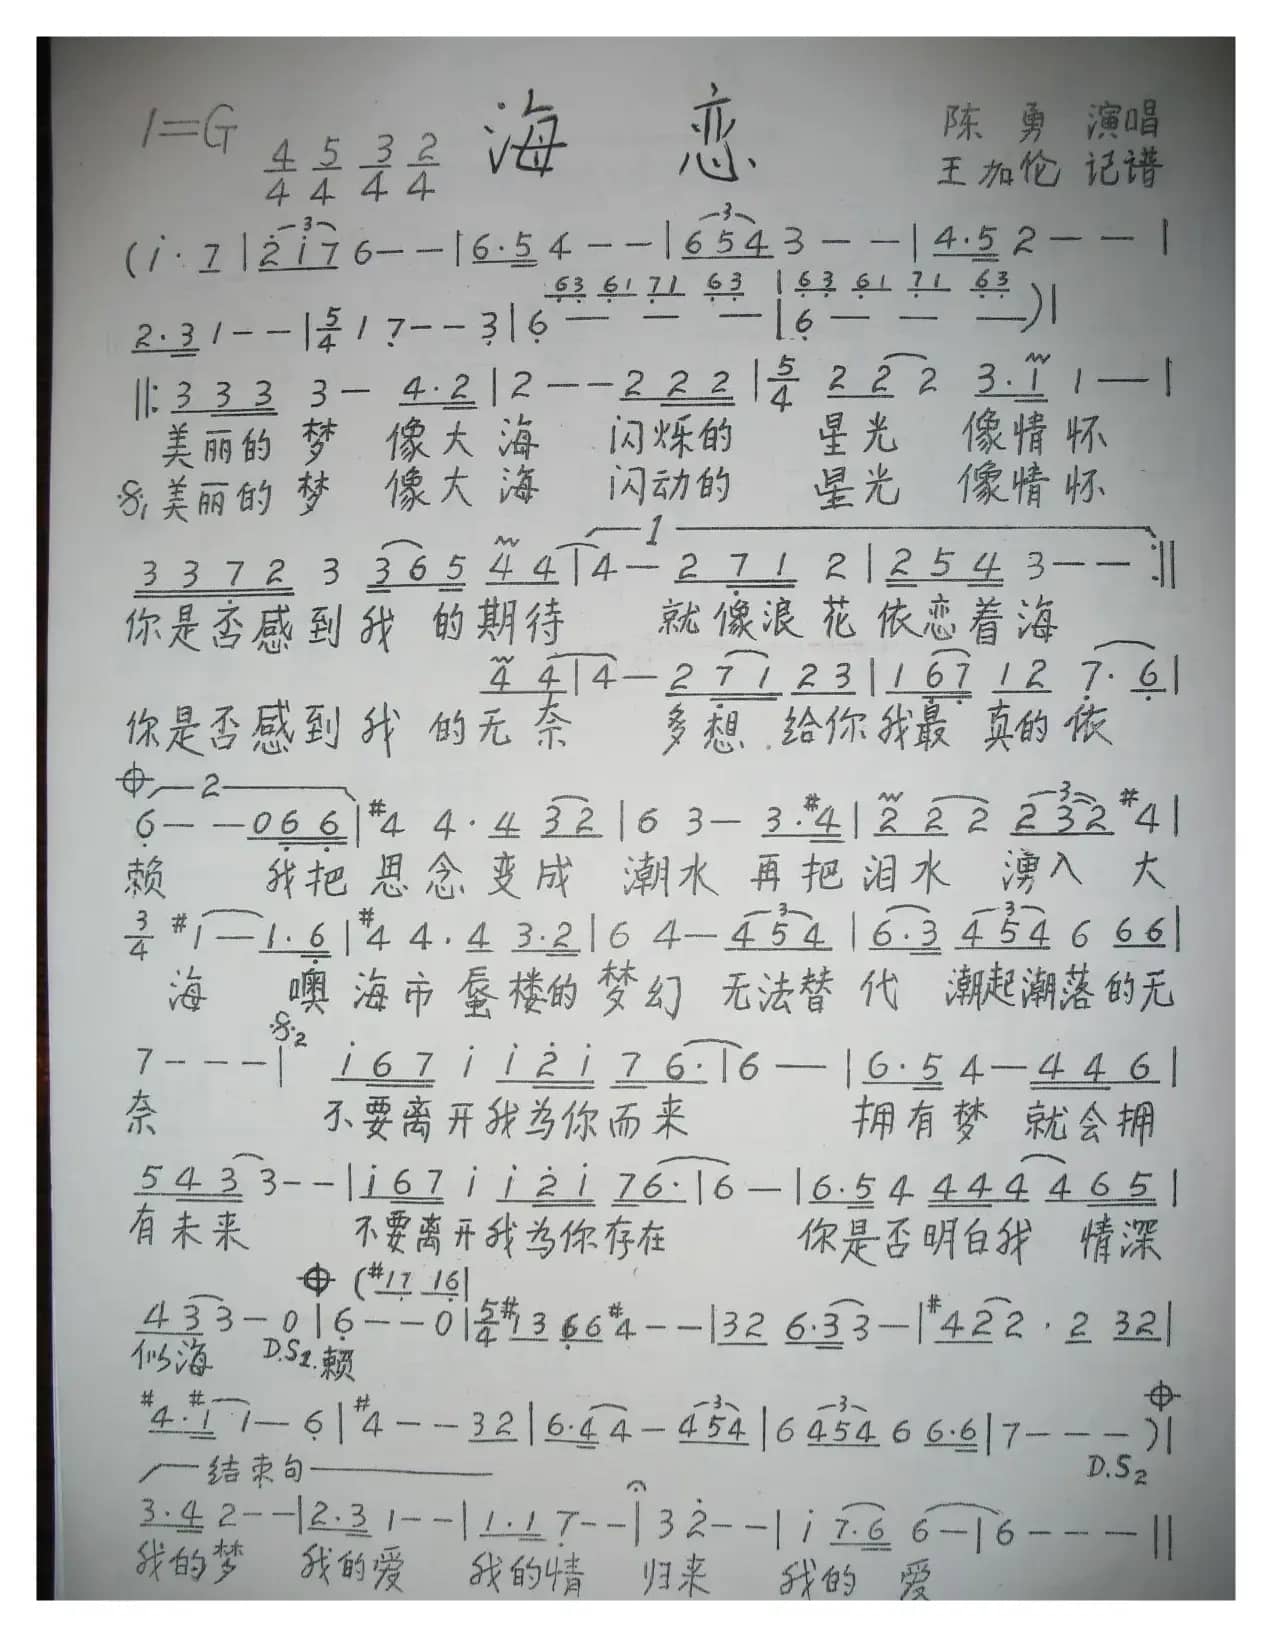 1=G 4/4 5/4 3/4 2/4 海 恋 陈 勇 演唱
王加伦 记谱
(i·7|2i76--|6·54--|6543--|4·52--|
63 61 71 63|63 61 71 63
2·31--|5/4 17--3|6---|6---)|
‖:333 3- 4·2|2--222|5/4 222 3·1 1-|
美丽的梦 像大海 闪烁的 星光 像情怀
𝄋1美丽的梦 像大海 闪动的 星光 像情怀
1
3372 3 365 44|4-271 2|254 3--:‖
你是否感到我 的期待 就像浪花依恋着海
44|4-271 23|167 12 7·6|
你是否感到我 的无奈 多想 给你我最 真的依
𝄌 2
6--066|#4 4·4 32|6 3-3·#4|222 232 #4|
赖 我把思念变成 潮水 再把泪水 湧入 大
3/4 #1-1·6|#4 4·4 3·2|6 4-454|6·3 454 6 66|
海 噢海市蜃楼的梦幻 无法替代 潮起潮落的无
𝄋2
7---| i67 i i2i 76·|6-|6·54-446|
奈 不要离开我为你而来 拥有梦 就会拥
5433--|i67 i i2i 76·|6-|6·54 444 465|
有未来 不要离开我为你存在 你是否明白我 情深
𝄌 (#17 16|
433-0|6--0|5/4 #13 66 #4--|32 6·33-|#422·2 32|
似海 D.S2.赖
#4·#1 1-6|#4--32|6·44-454|6 454 6 6·6|7---)| 𝄌
D.S2
结束句
3·42--|2·31--|1·17--|32--|i 7·6 6-|6---‖
我的梦 我的爱 我的情 归来 我的 爱